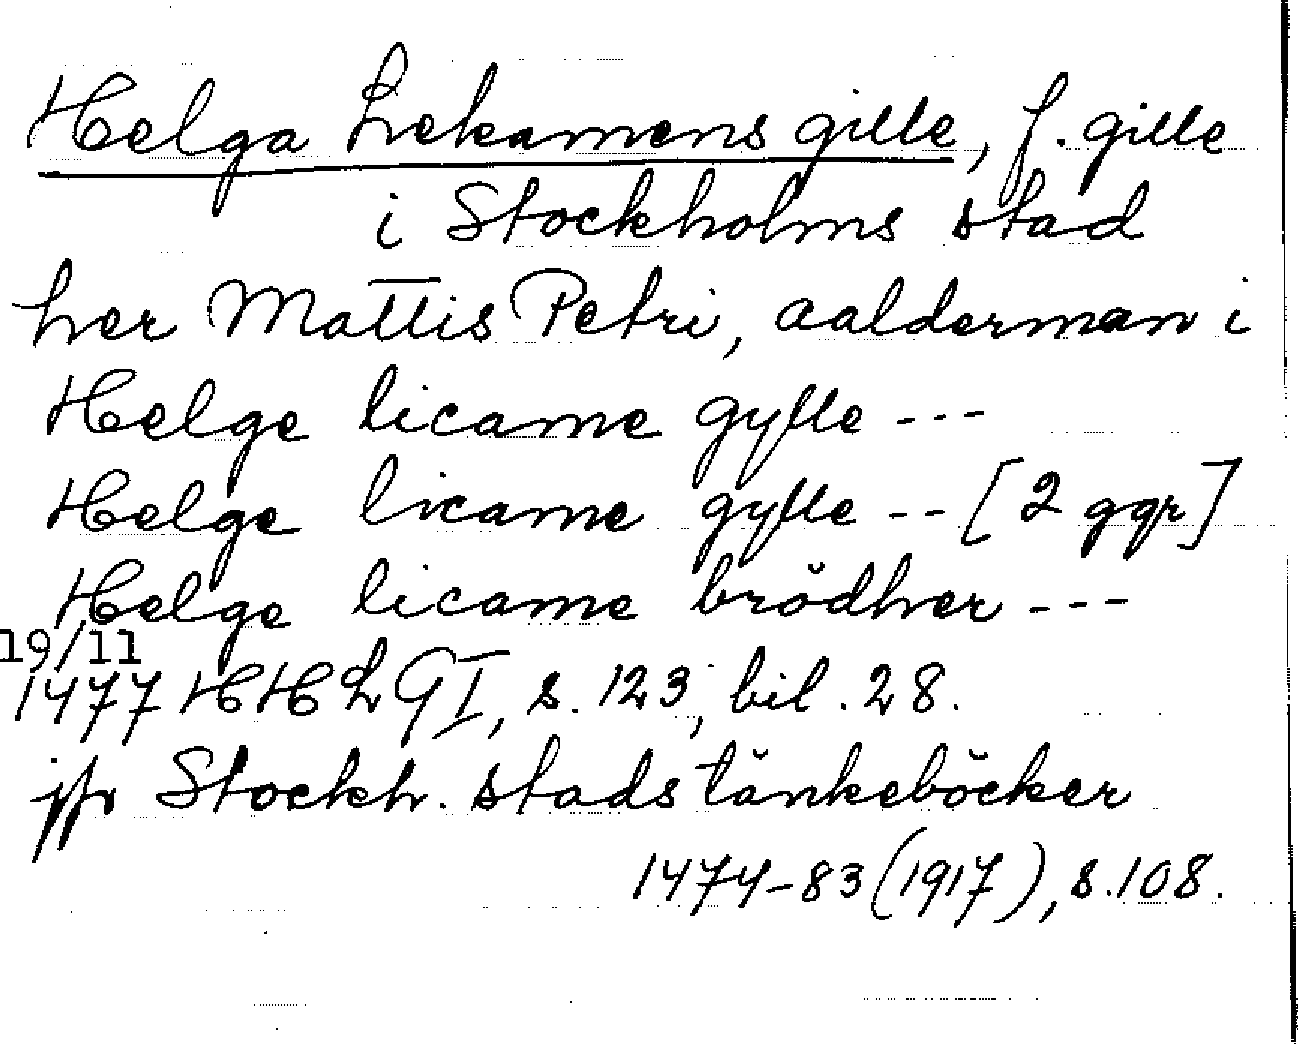 Helga Lekamens gille, f. gille
i Stockholms stad
her Mattis Petri, aalderman i
Helge licame gylle ---
Helge licame gylle -- [2 ggr]
Helge licame brödher ---
19/11
1477 HHLGI, s. 123, bil. 28.
jfr Stockh. stads tänkeböcker
1474-83 (1917), s. 108.